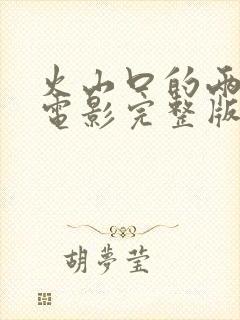 火山口的兩
電影完整版
胡夢瑩